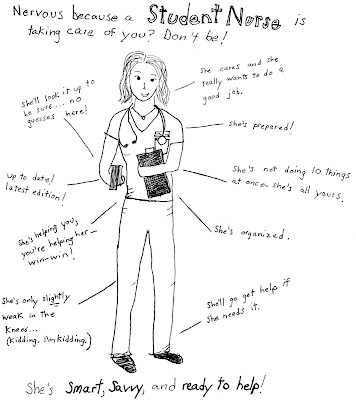 Nervous because a Student Nurse is
taking care of you? Don't be!
She cares and she
really wants to do a
good job.
She'll look it up to
be sure... no
guesses here!
She's prepared!
up to date!
latest edition!
She's not doing 10 things
at once she's all yours.
She's helping you,
you're helping her—
win-win!
She's organized.
She's only slightly
weak in the
knees...
(Kidding. I'm Kidding.)
She'll go get help if
she needs it.
She's Smart, Savvy, and ready to help!